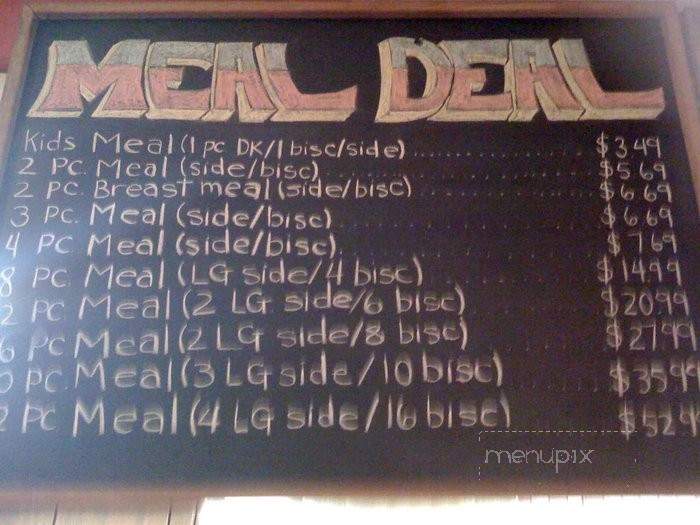 MEAL DEAL
Kids Meal (1 pc DK/1 bisc/side) $3.49
2 PC. Meal (side/bisc) $5.69
2 PC. Breast meal (side/bisc) $6.69
3 PC. Meal (side/bisc) $6.69
4 PC Meal (side/bisc) $7.69
8 PC Meal (LG side/4 bisc) $14.99
2 PC Meal (2 LG side/6 bisc) $20.99
6 PC Meal (2 LG side/8 bisc) $27.99
0 PC. Meal (3 LG side/10 bisc) $35.99
2 PC Meal (4 LG side/16 bisc) $52.9
menupix